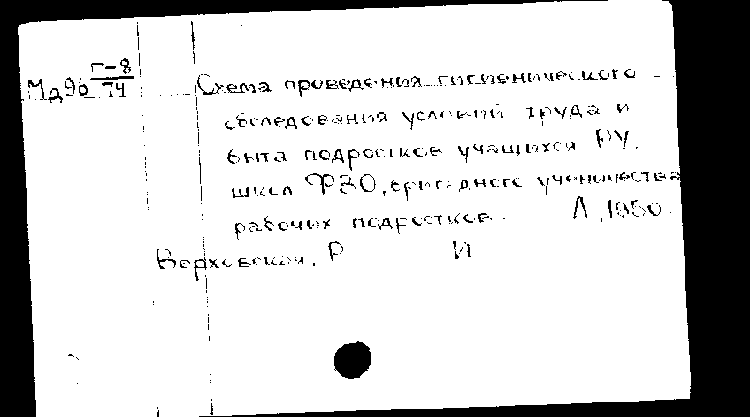 Г-8
Мд96 74
Схема проведения гигиенического
обследования условий труда и
быта подростков учащихся РУ,
школ ФЗО, бригадного ученичества
рабочих подростков. Л, 1950.
Верховская, Р И